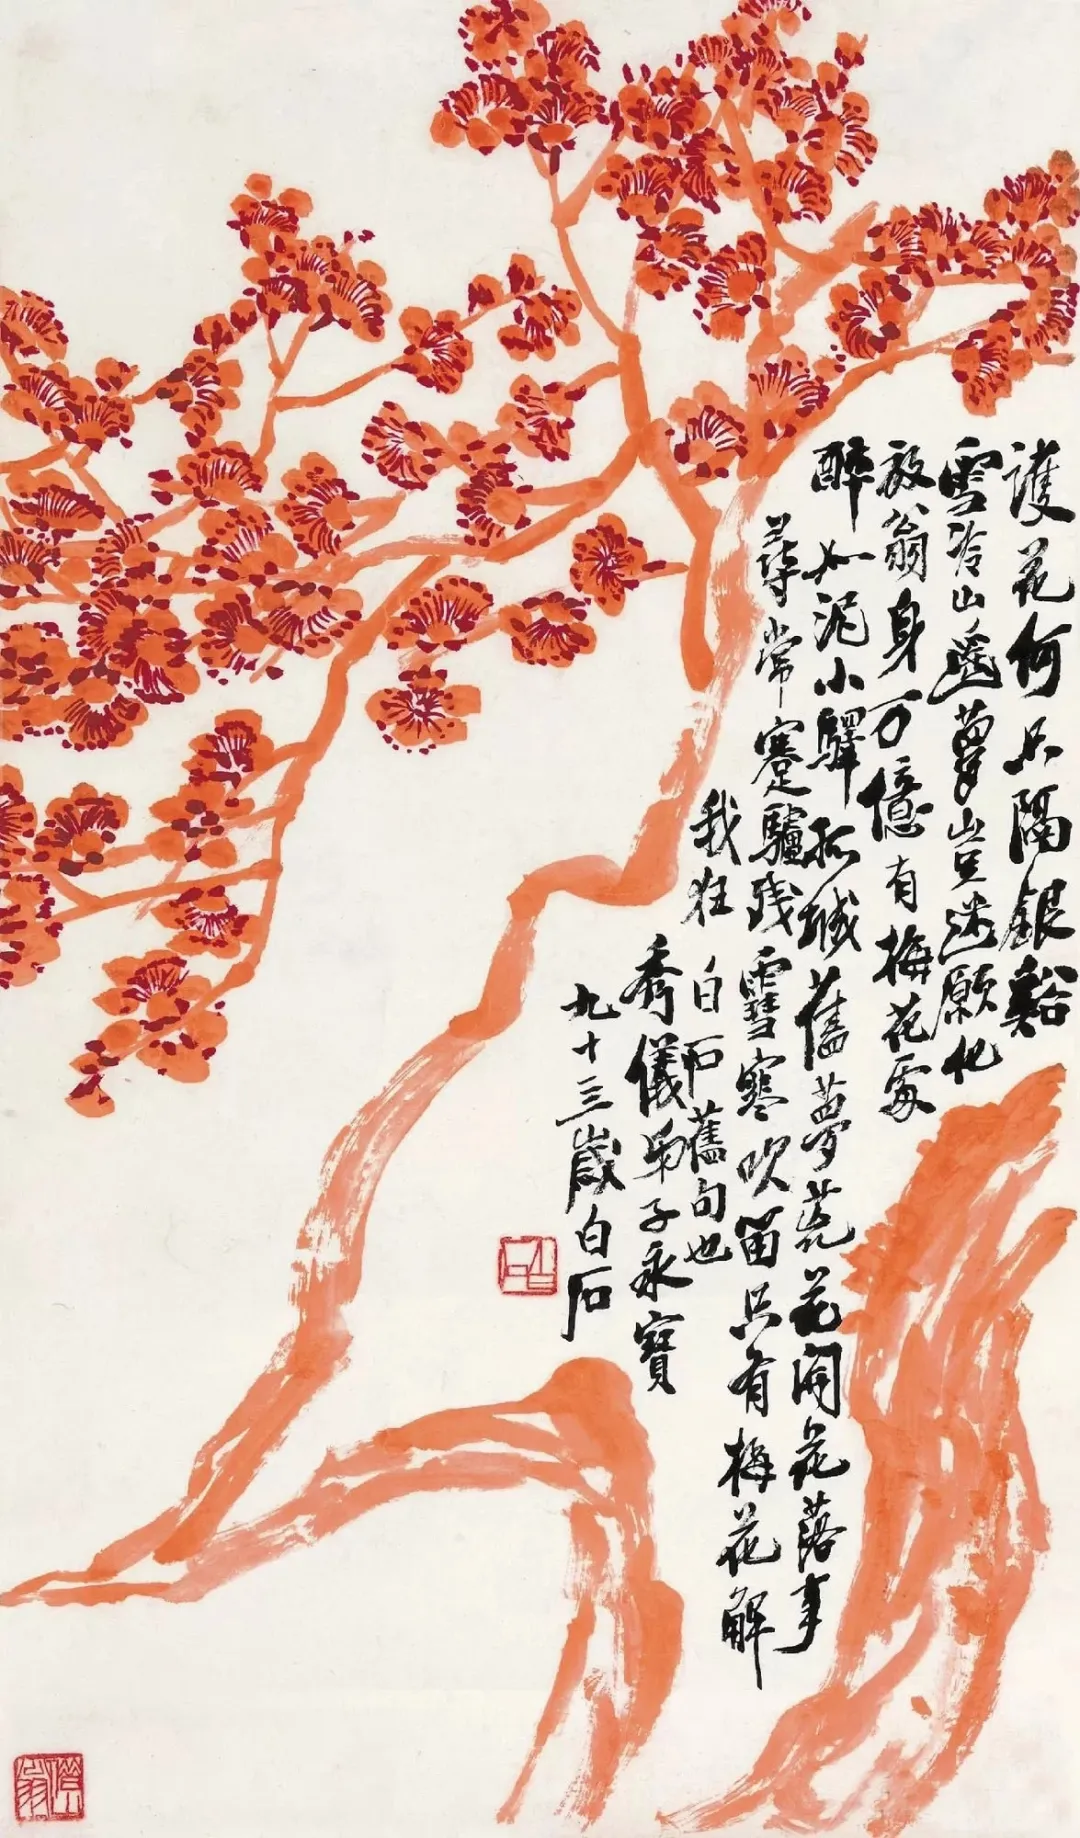 護花何只隔銀谿
雪冷山遙夢豈迷願化
放翁身万億有梅花處
醉如泥小驛孤城舊夢荒花開花落事
尋常蹇驢残雪寒吹笛只有梅花解
我狂 白石舊句也
秀儀弟子永寶
九十三歲白石